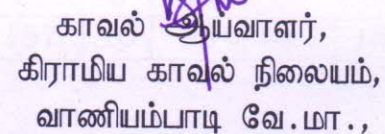 காவல் ஆய்வாளர்,
கிராமிய காவல் நிலையம்,
வாணியம்பாடி வே.மா.,